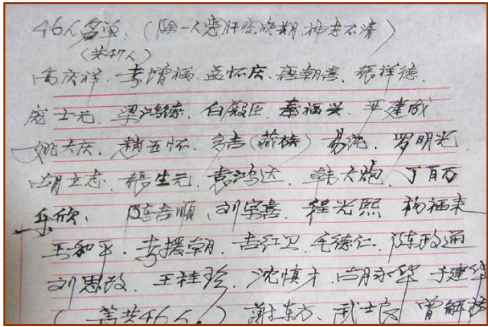 46人名单、(除一人患肝癌晚期、神志不清)
(共47人)
高庆祥、李增福、孟怀庆、赵朝喜、张祥德、
庞士元、梁鸿禄、白殿臣、秦福兴、尹建成
姚大庆、赵五怀、(蒜捞)易说、罗明光
胡立志、杨生元、袁鸿达、韩大炮、丁百万
乐欣、陈吉顺、刘字喜、程光熙、杨福来
王和平、李援朝、吉红卫、毛德仁、陈政通
刘思政、王桂珍、沈慎才、胡永华、于建华
(共46人。)谢东方、武士良、曾解放